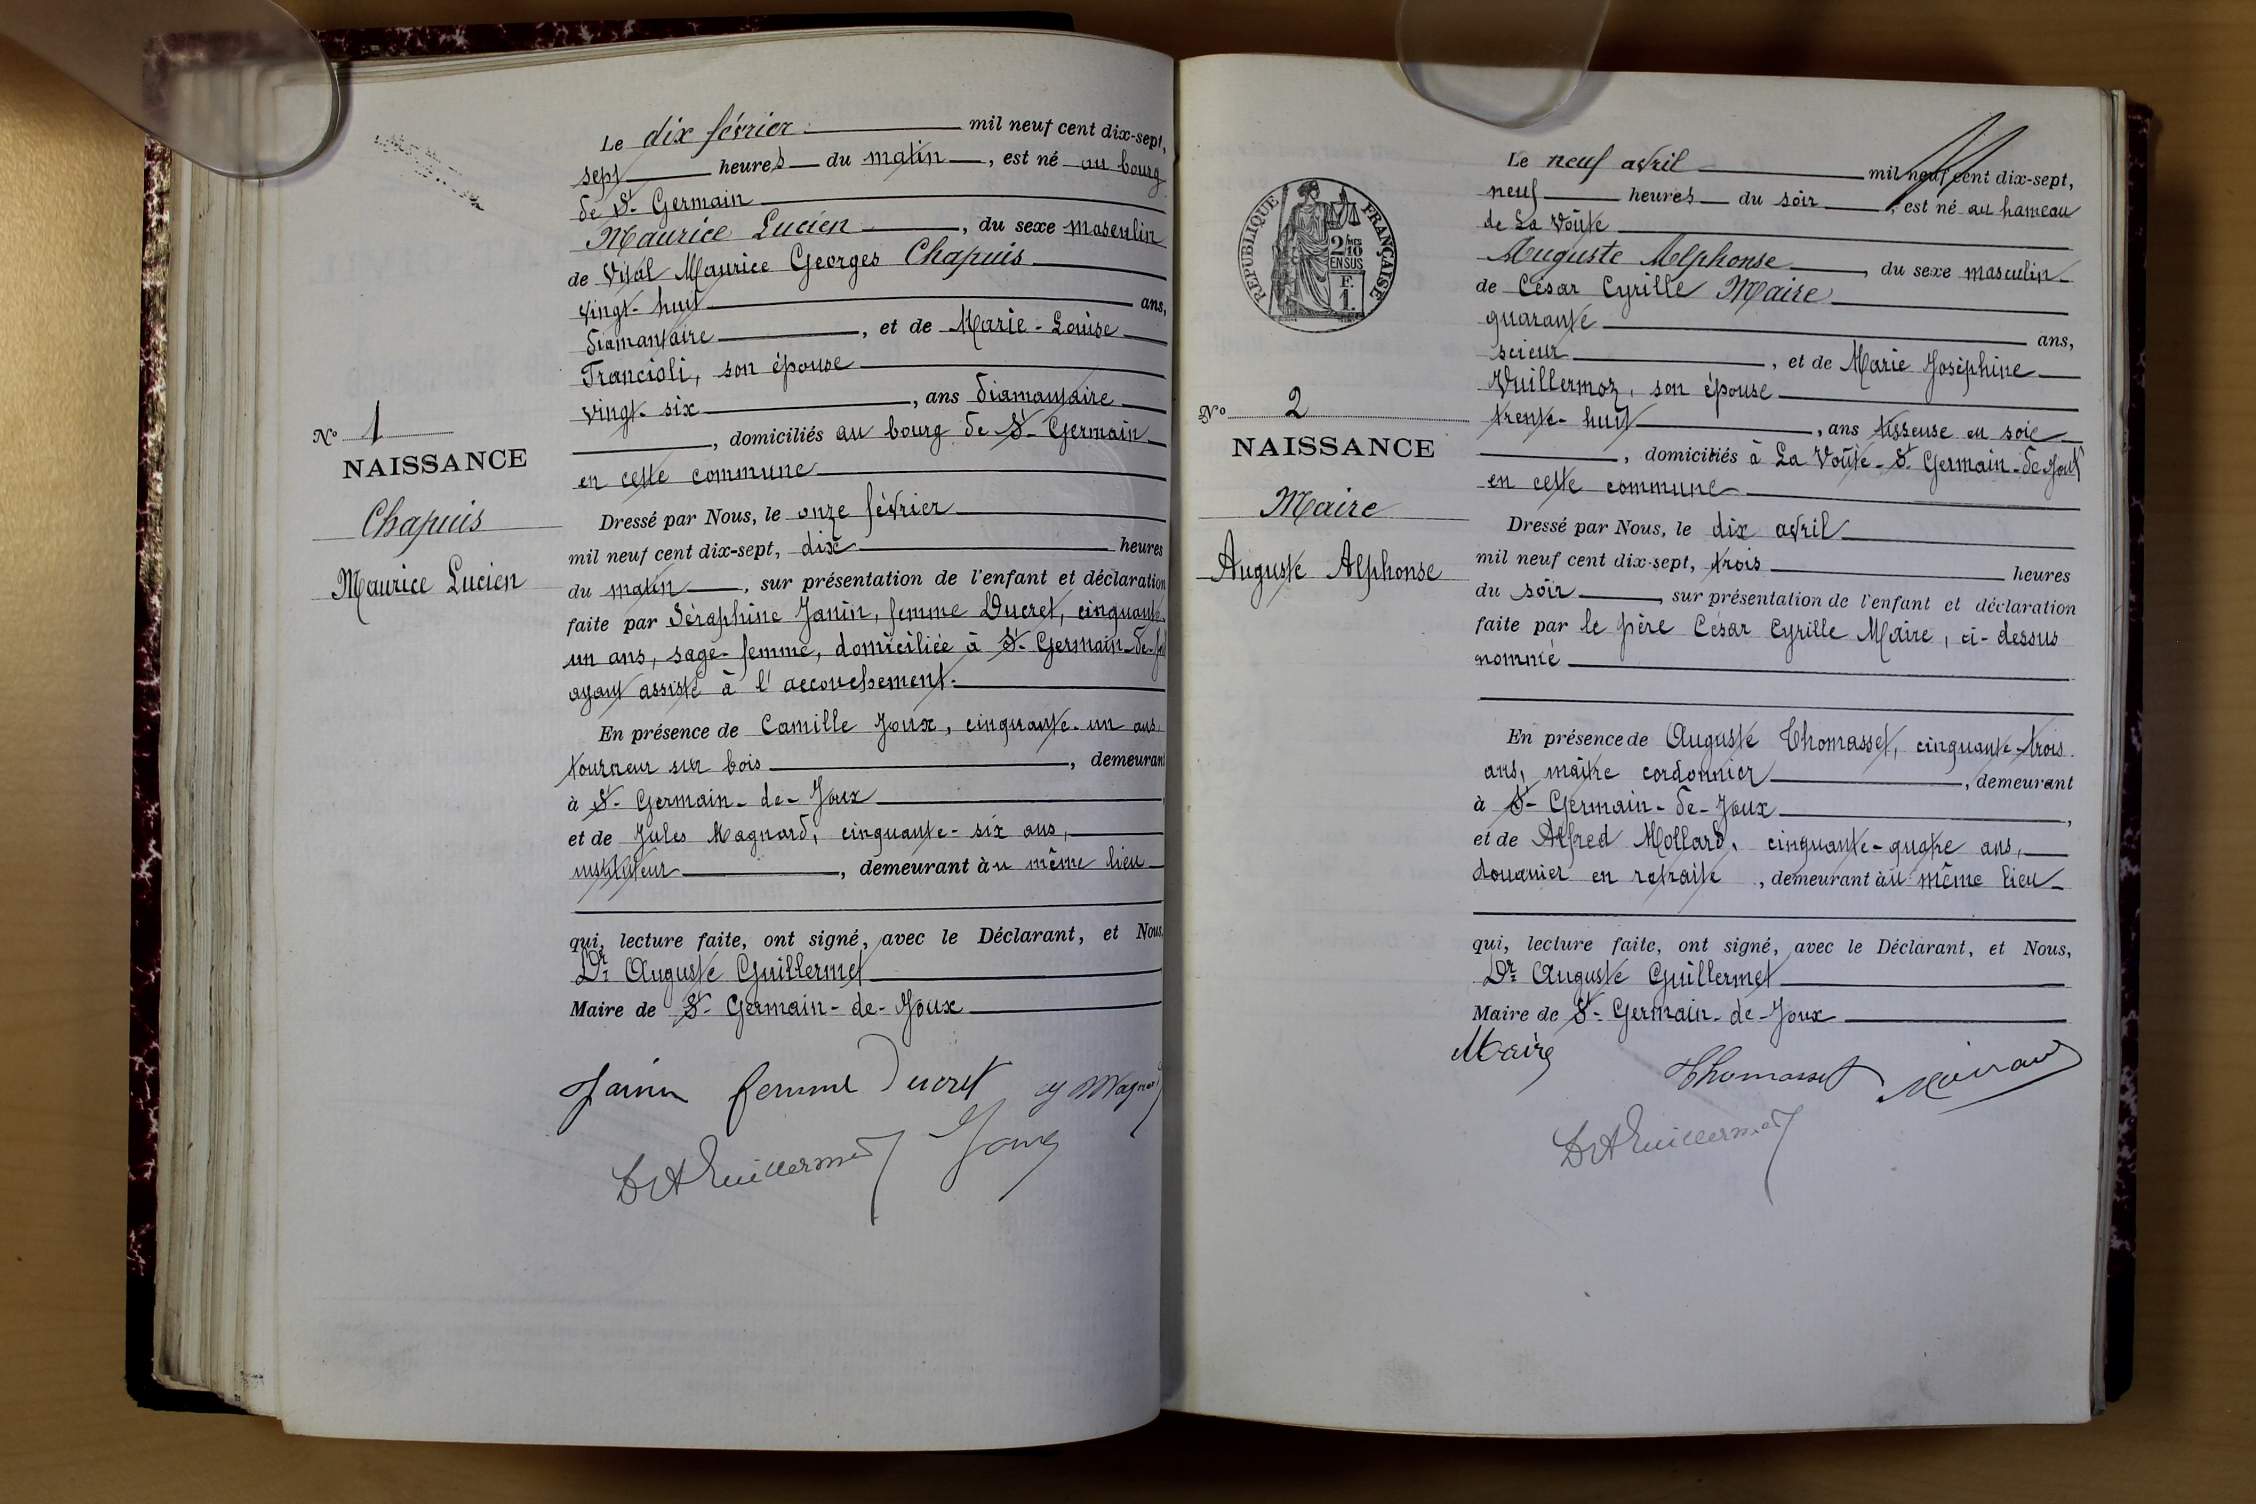 Le dix février mil neuf cent dix-sept,
sept heures du matin, est né au bourg
de St- Germain
Maurice Lucien, du sexe masculin
de Vital Maurice Georges Chapuis
vingt-huit ans,
diamantaire, et de Marie-Louise
Francioli, son épouse
vingt-six, ans diamantaire
, domiciliés au bourg de St- Germain
en cette commune
Nº 1
NAISSANCE
Chapuis
Maurice Lucien
Dressé par Nous, le onze février
mil neuf cent dix-sept, dix heures
du matin, sur présentation de l'enfant et déclaration
faite par Séraphine Janin, femme Ducret, cinquante-
un ans, sage-femme, domiciliée à St- Germain-de-
ayant assisté à l'accouchement.
En présence de Camille Joux, cinquante-un ans,
tourneur sur bois, demeurant
à St- Germain-de-Joux
et de Jules Magnard, cinquante-six ans,
instituteur, demeurant au même lieu
qui, lecture faite, ont signé, avec le Déclarant, et Nous,
Dr Auguste Guillermet
Maire de St- Germain-de-Joux
Janin femme Ducret J Magnard
DrAGuillermet Joux
RÉPUBLIQUE FRANÇAISE
2/10 mes
EN SUS
F.
1.
Le neuf avril mil neuf cent dix-sept,
neuf heures du soir, est né au hameau
de La Voûte
Auguste Alphonse, du sexe masculin
de César Cyrille Maire
quarante ans,
scieur, et de Marie Joséphine
Vuillermoz, son épouse
trente-huit, ans tisseuse en soie
, domiciliés à La Voûte-St Germain-de-Joux
en cette commune
Nº 2
NAISSANCE
Maire
Auguste Alphonse
Dressé par Nous, le dix avril
mil neuf cent dix-sept, trois heures
du soir, sur présentation de l'enfant et déclaration
faite par le père César Cyrille Maire, ci-dessus
nommé
En présence de Auguste Thomasset, cinquante-trois
ans, maître cordonnier, demeurant
à St- Germain-de-Joux,
et de Alfred Mollard, cinquante-quatre ans,
douanier en retraite, demeurant au même lieu
qui, lecture faite, ont signé, avec le Déclarant, et Nous,
Dr Auguste Guillermet
Maire de St- Germain-de-Joux
Maire Thomasset
DrAGuillermet